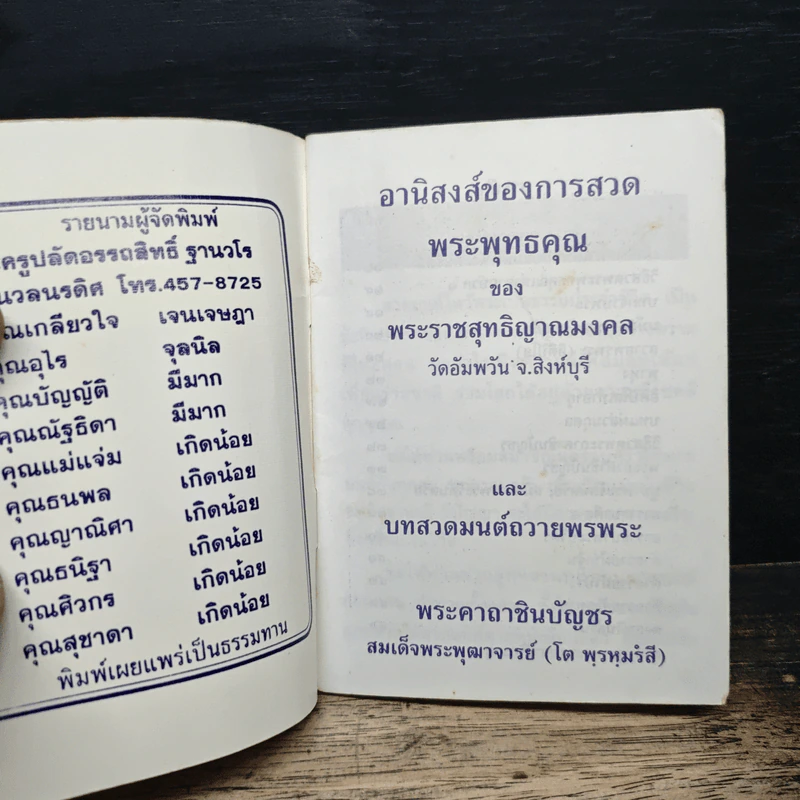 รายนามผู้จัดพิมพ์
ครูปลัดอรรถสิทธิ์ ฐานวโร
นวลนรดิศ โทร.457-8725
คุณเกลียวใจ เจนเจษฎา
คุณอุไร จุลนิล
คุณบัญญัติ มีมาก
คุณณัฐธิดา มีมาก
คุณแม่แจ่ม เกิดน้อย
คุณธนพล เกิดน้อย
คุณญาณิศา เกิดน้อย
คุณธนิฐา เกิดน้อย
คุณศิวกร เกิดน้อย
คุณสุชาดา เกิดน้อย
พิมพ์เผยแพร่เป็นธรรมทาน
อานิสงส์ของการสวด
พระพุทธคุณ
ของ
พระราชสุทธิญาณมงคล
วัดอัมพวัน จ.สิงห์บุรี
และ
บทสวดมนต์ถวายพรพระ
พระคาถาชินบัญชร
สมเด็จพระพุฒาจารย์ (โต พฺรหฺมรํสี)